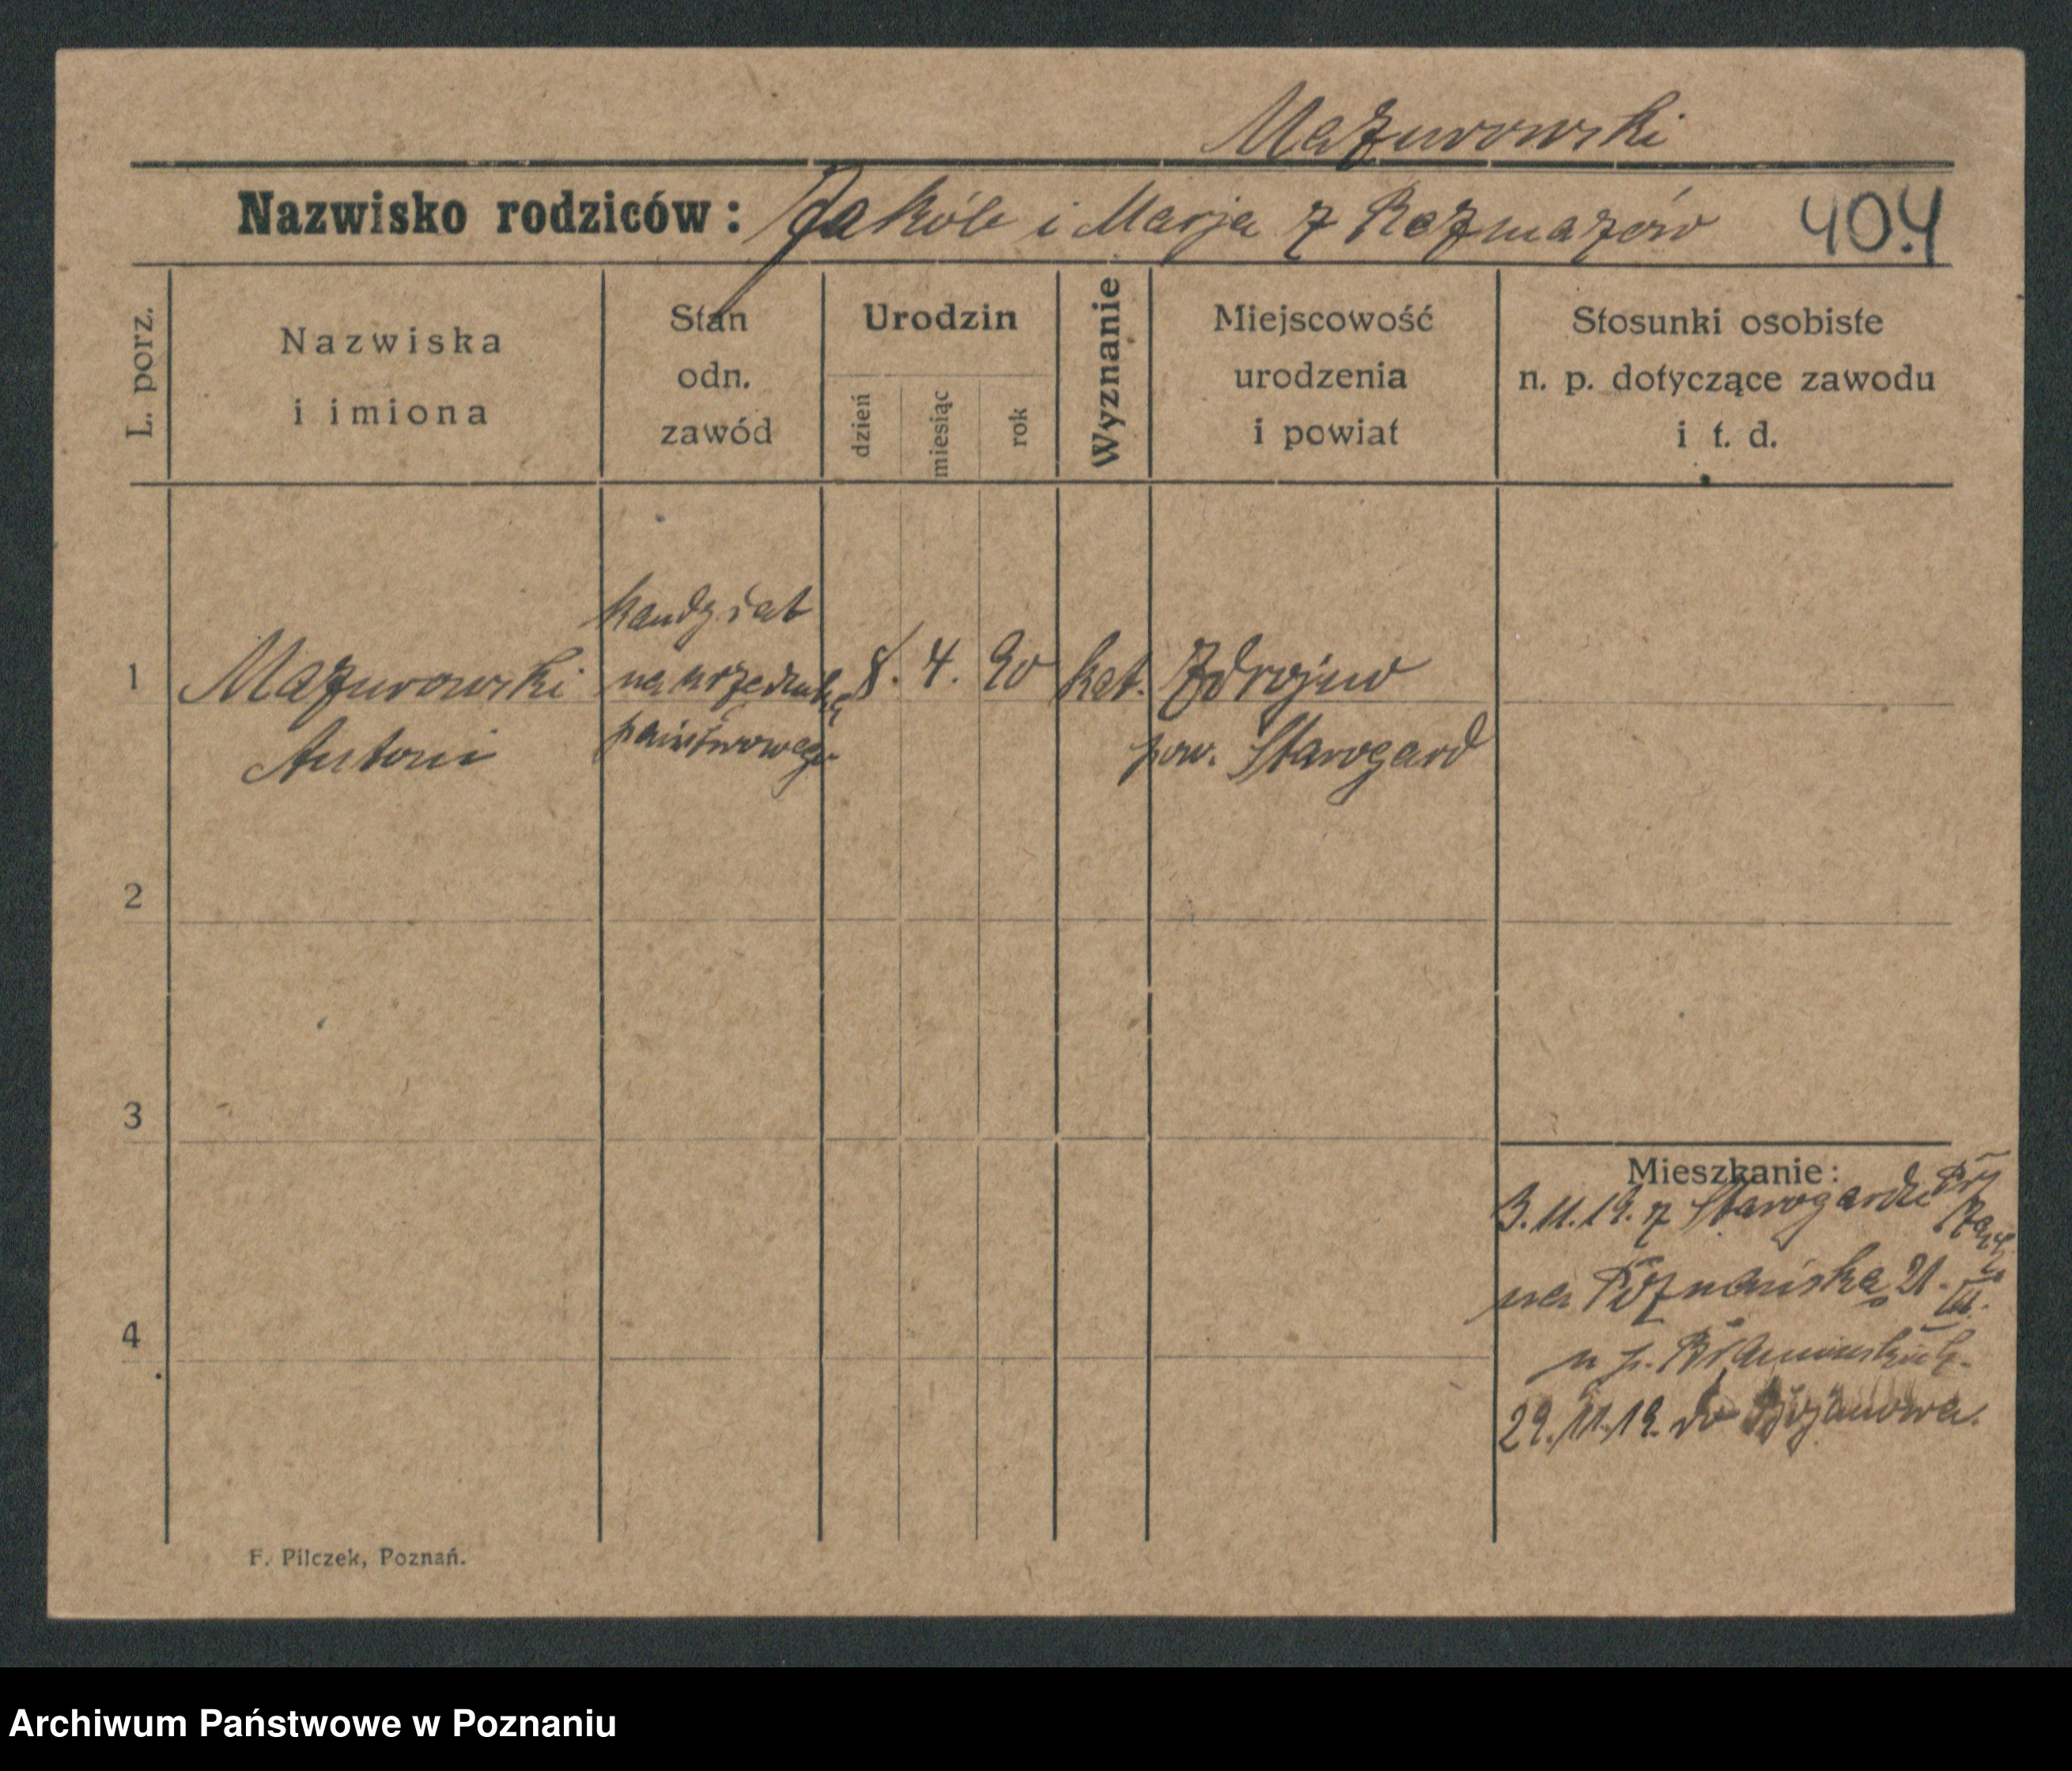 Mazurowski
Nazwisko rodziców: Jakób i Marja z Kazmazów 404
L. porz.
Nazwiska
i imiona
Stan
odn.
zawód
Urodzin
dzień
miesiąc
rok
Wyznanie
Miejscowość
urodzenia
i powiat
Stosunki osobiste
n. p. dotyczące zawodu
i t. d.
1
Mazurowski
Antoni
kandydat
na urzędnika
państwowego
8. 4. 90
kat.
Zdrojno
pow. Starogard
2
3
4
Mieszkanie:
3.11.19. z Starogardu
na Poznańska 21. III.
u p.
29.11.19. do
F. Pilczek, Poznań.
Archiwum Państwowe w Poznaniu